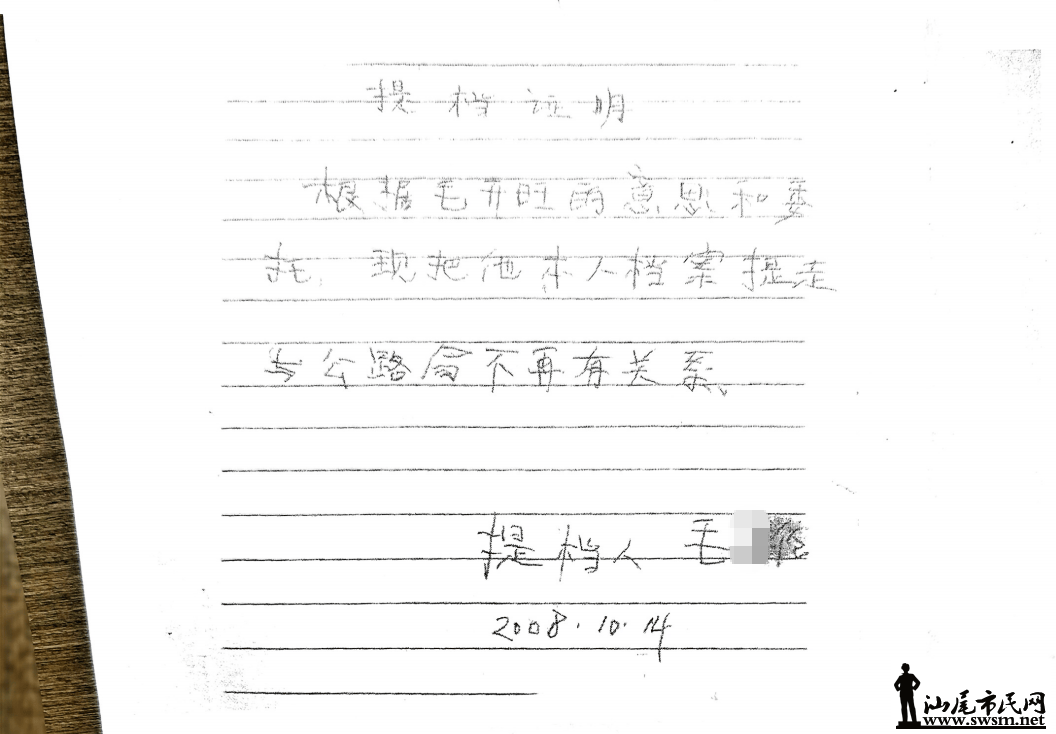 提档证明
根据毛开旺的意思和委
托，现把他本人档案提走
与公路局不再有关系
提档人 毛
2008.10.14
汕尾市民网
www.swsm.net